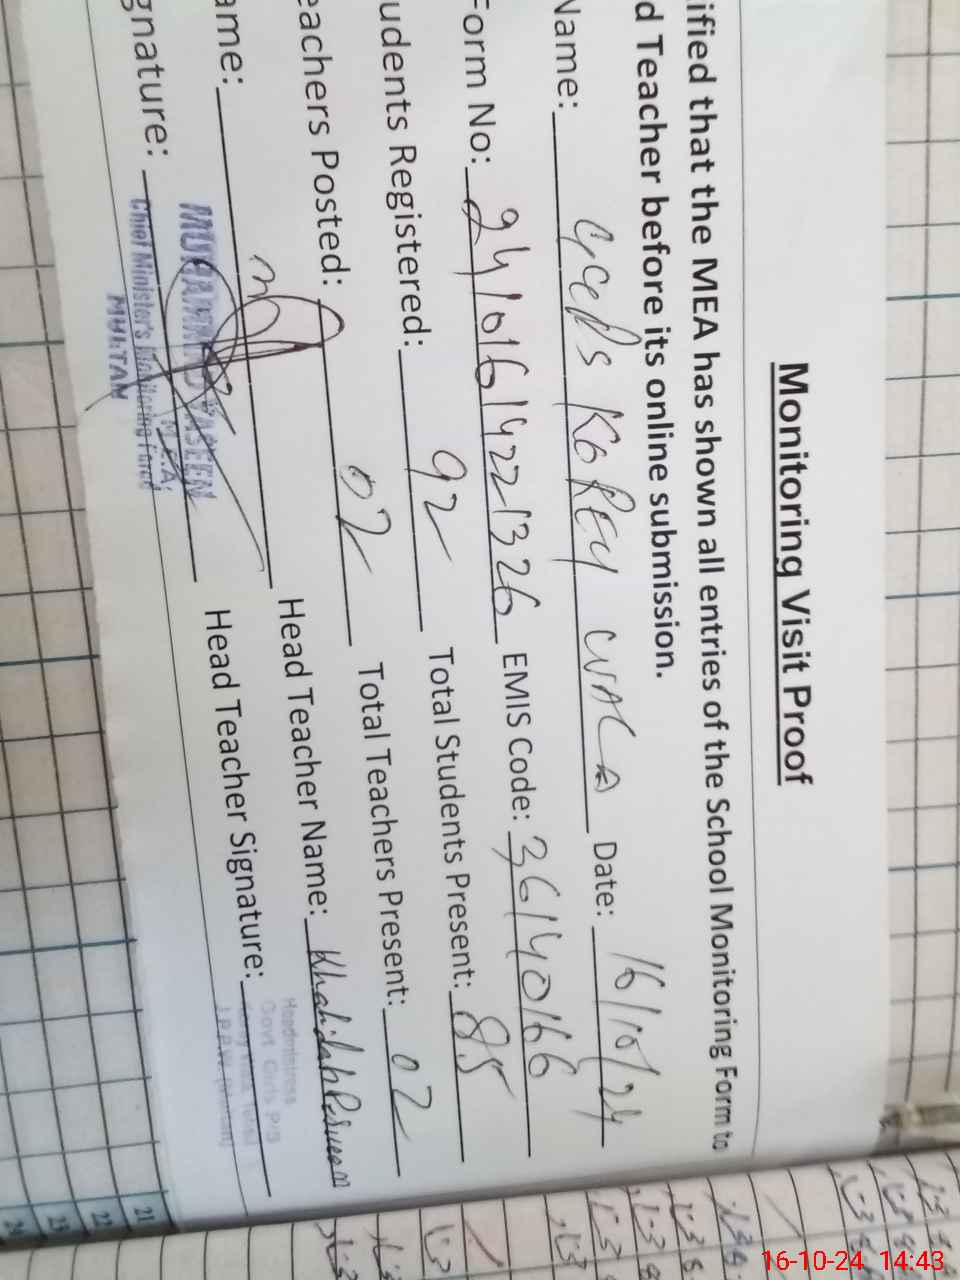 Monitoring Visit Proof
ified that the MEA has shown all entries of the School Monitoring Form to
d Teacher before its online submission.
Name: GGPS KOREY WALA Date: 16/10/24
Form No: 24101614221326 EMIS Code: 36140166
udents Registered: 92 Total Students Present: 85
eachers Posted: 02 Total Teachers Present: 02
ame: Head Teacher Name: Khalidah
gnature: Head Teacher Signature:
MUHAMMAD YASEEN
M.E.A.
Chief Minister's Monitoring Force
MULTAN
Headmistress
Govt. Girls P/S
21
22
23
24
16-10-24 14:43